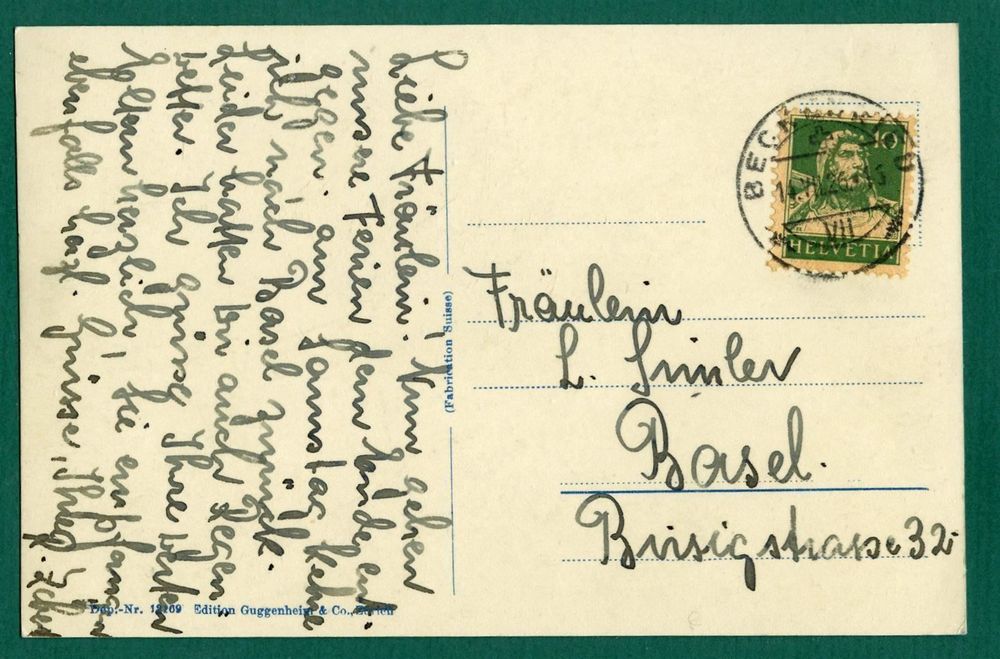 Liebe Fräulein! Nun gehen
unsere Ferien dem Ende ent
gegen am Samstag kehre
ich nach Basel zurück.
Leider hatten wir auch Regen
wetter. Ich grüsse Ihre
herzlich! Sie empfangen
ebenfalls herzl. Grüsse,
(Fabrication Suisse)
Dép.-Nr. 12169 Edition Guggenheim & Co., Zürich
BECKENRIED
VII
10
HELVETIA
Fräulein
L. Simler
Basel.
Birsigstrasse 32